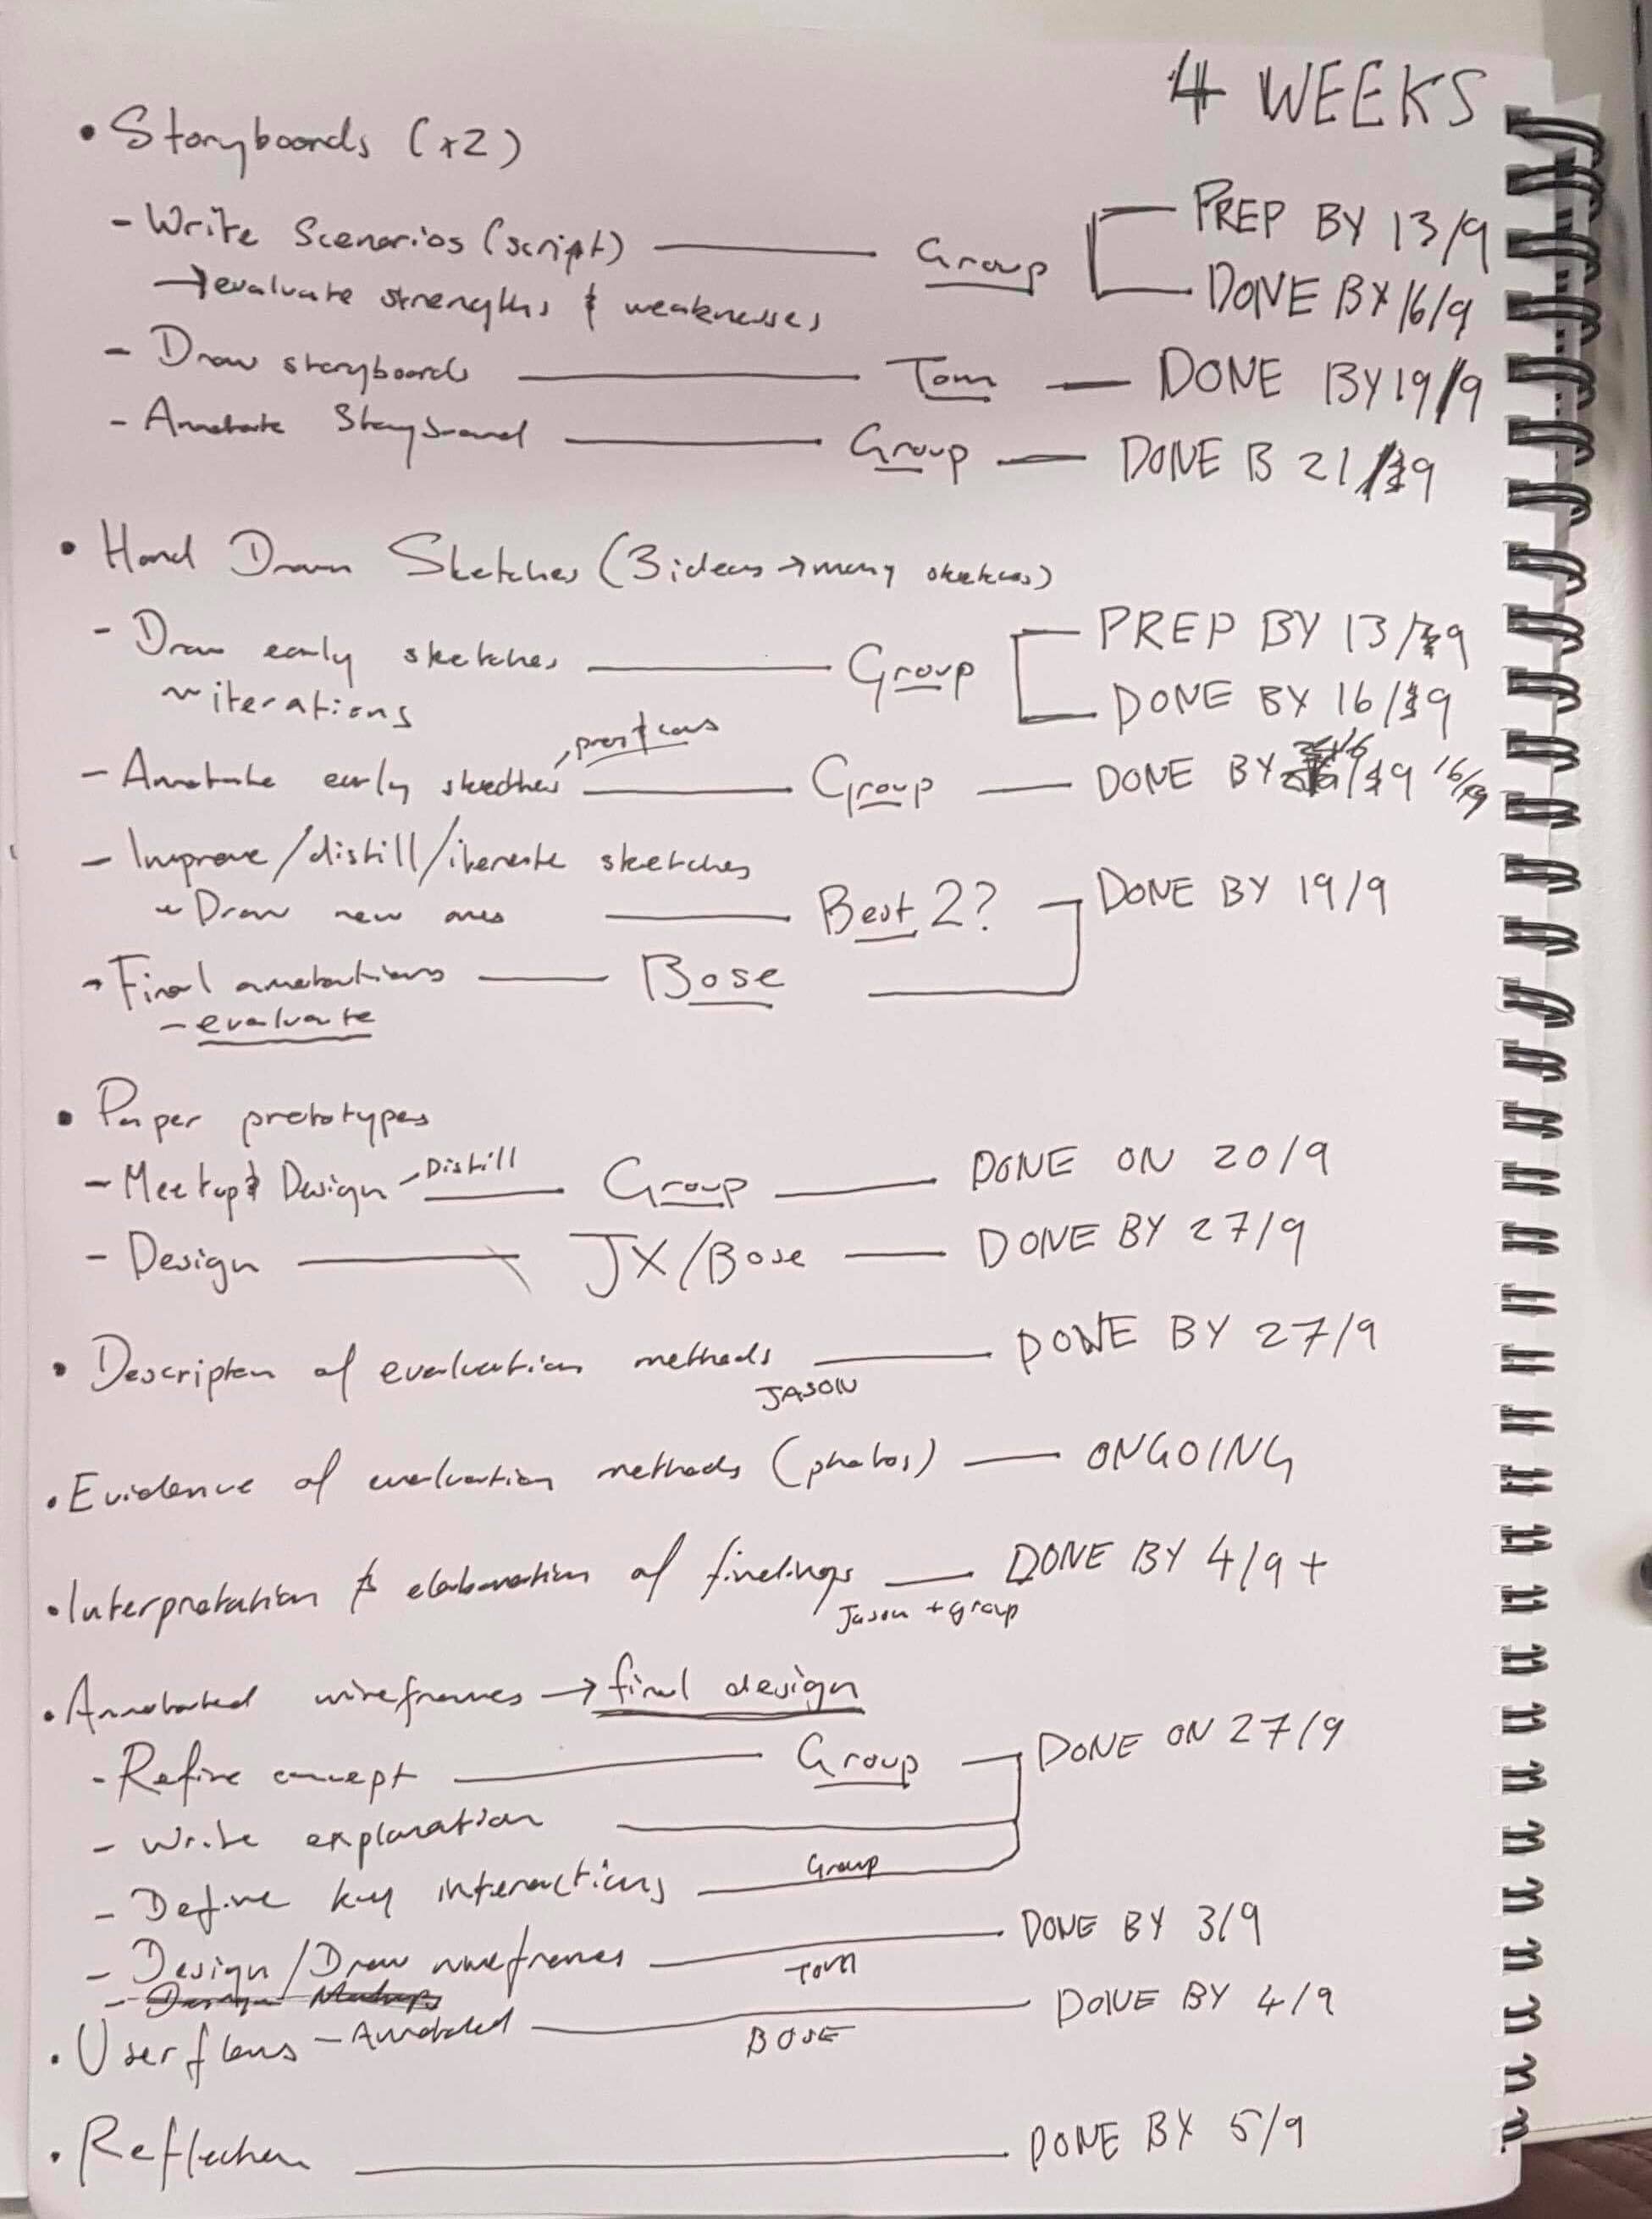 4 WEEKS
• Storyboards (x2)
- Write Scenarios (script) — Group — PREP BY 13/9
→ evaluate strengths & weaknesses — DONE BY 16/9
- Draw storyboards — Tom — DONE BY 19/9
- Annotate Storyboard — Group — DONE B 21/9
• Hand Drawn Sketches (3 ideas → many sketches)
- Draw early sketches — Group — PREP BY 13/9
~ iterations — DONE BY 16/9
- Annotate early sketches, pros/cons — Group — DONE BY 16/9
- Improve/distill/iterate sketches
+ Draw new ones — Best 2? — DONE BY 19/9
- Final annotations — Bose
- evaluate
• Paper prototypes
- Meetup & Design - Distill — Group — DONE ON 20/9
- Design — JX/Bose — DONE BY 27/9
• Description of evaluation methods — DONE BY 27/9
JASON
• Evidence of evaluation methods (photos) — ONGOING
• Interpretation & elaboration of findings — DONE BY 4/9 +
Jason + group
• Annotated wireframes → final design
- Refine concept — Group — DONE ON 27/9
- Write explanation
- Define key interactions — Group
- Design/Draw wireframes — Tom — DONE BY 3/9
- Design Mockups
• Userflows - Annotated — BOSE — DONE BY 4/9
• Reflection — DONE BY 5/9